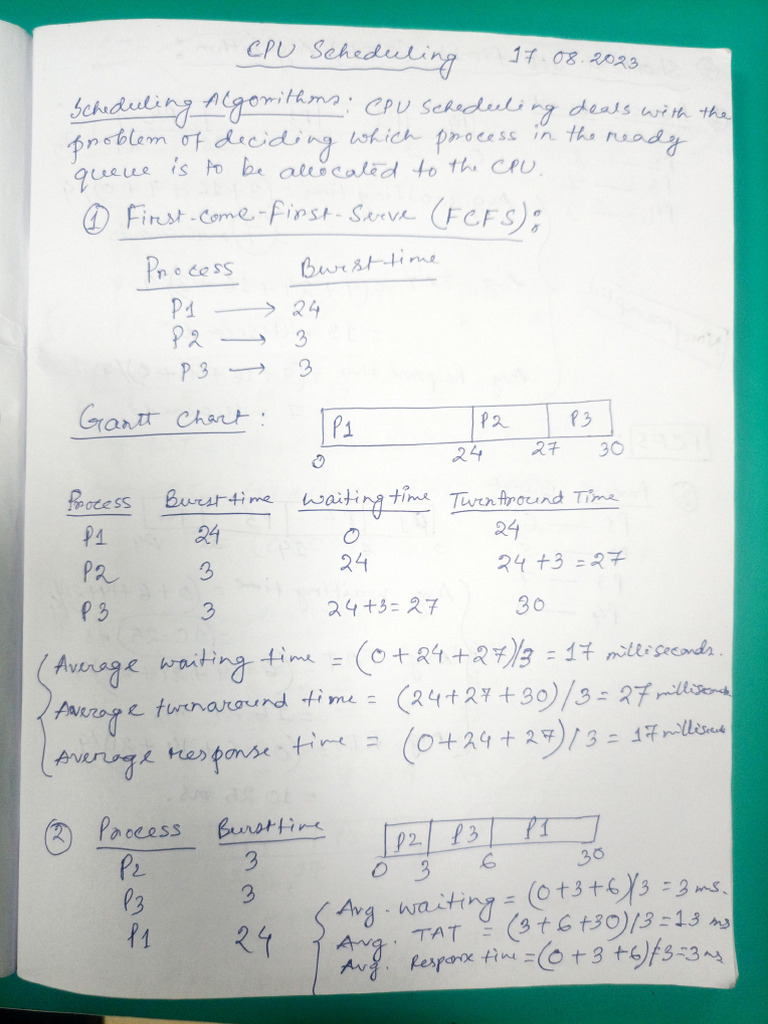 CPU Scheduling 17.08.2023
Scheduling Algorithms: CPU Scheduling deals with the
problem of deciding which process in the ready
queue is to be allocated to the CPU.
① First-come-First-Serve (FCFS):
Process Burst time
P1 → 24
P2 → 3
P3 → 3
Gantt Chart: P1 P2 P3
0 24 27 30
Process Burst time Waiting time TurnAround Time
P1 24 0 24
P2 3 24 24+3=27
P3 3 24+3=27 30
Average waiting time = (0+24+27)/3 = 17 milliseconds.
Average turnaround time = (24+27+30)/3 = 27 milliseconds
Average response time = (0+24+27)/3 = 17 milliseconds
② Process Burst time P2 P3 P1
0 3 6 30
P2 3
P3 3
P1 24
Avg. waiting = (0+3+6)/3 = 3 ms.
Avg. TAT = (3+6+30)/3 = 13 ms
Avg. Response time = (0+3+6)/3 = 3 ms